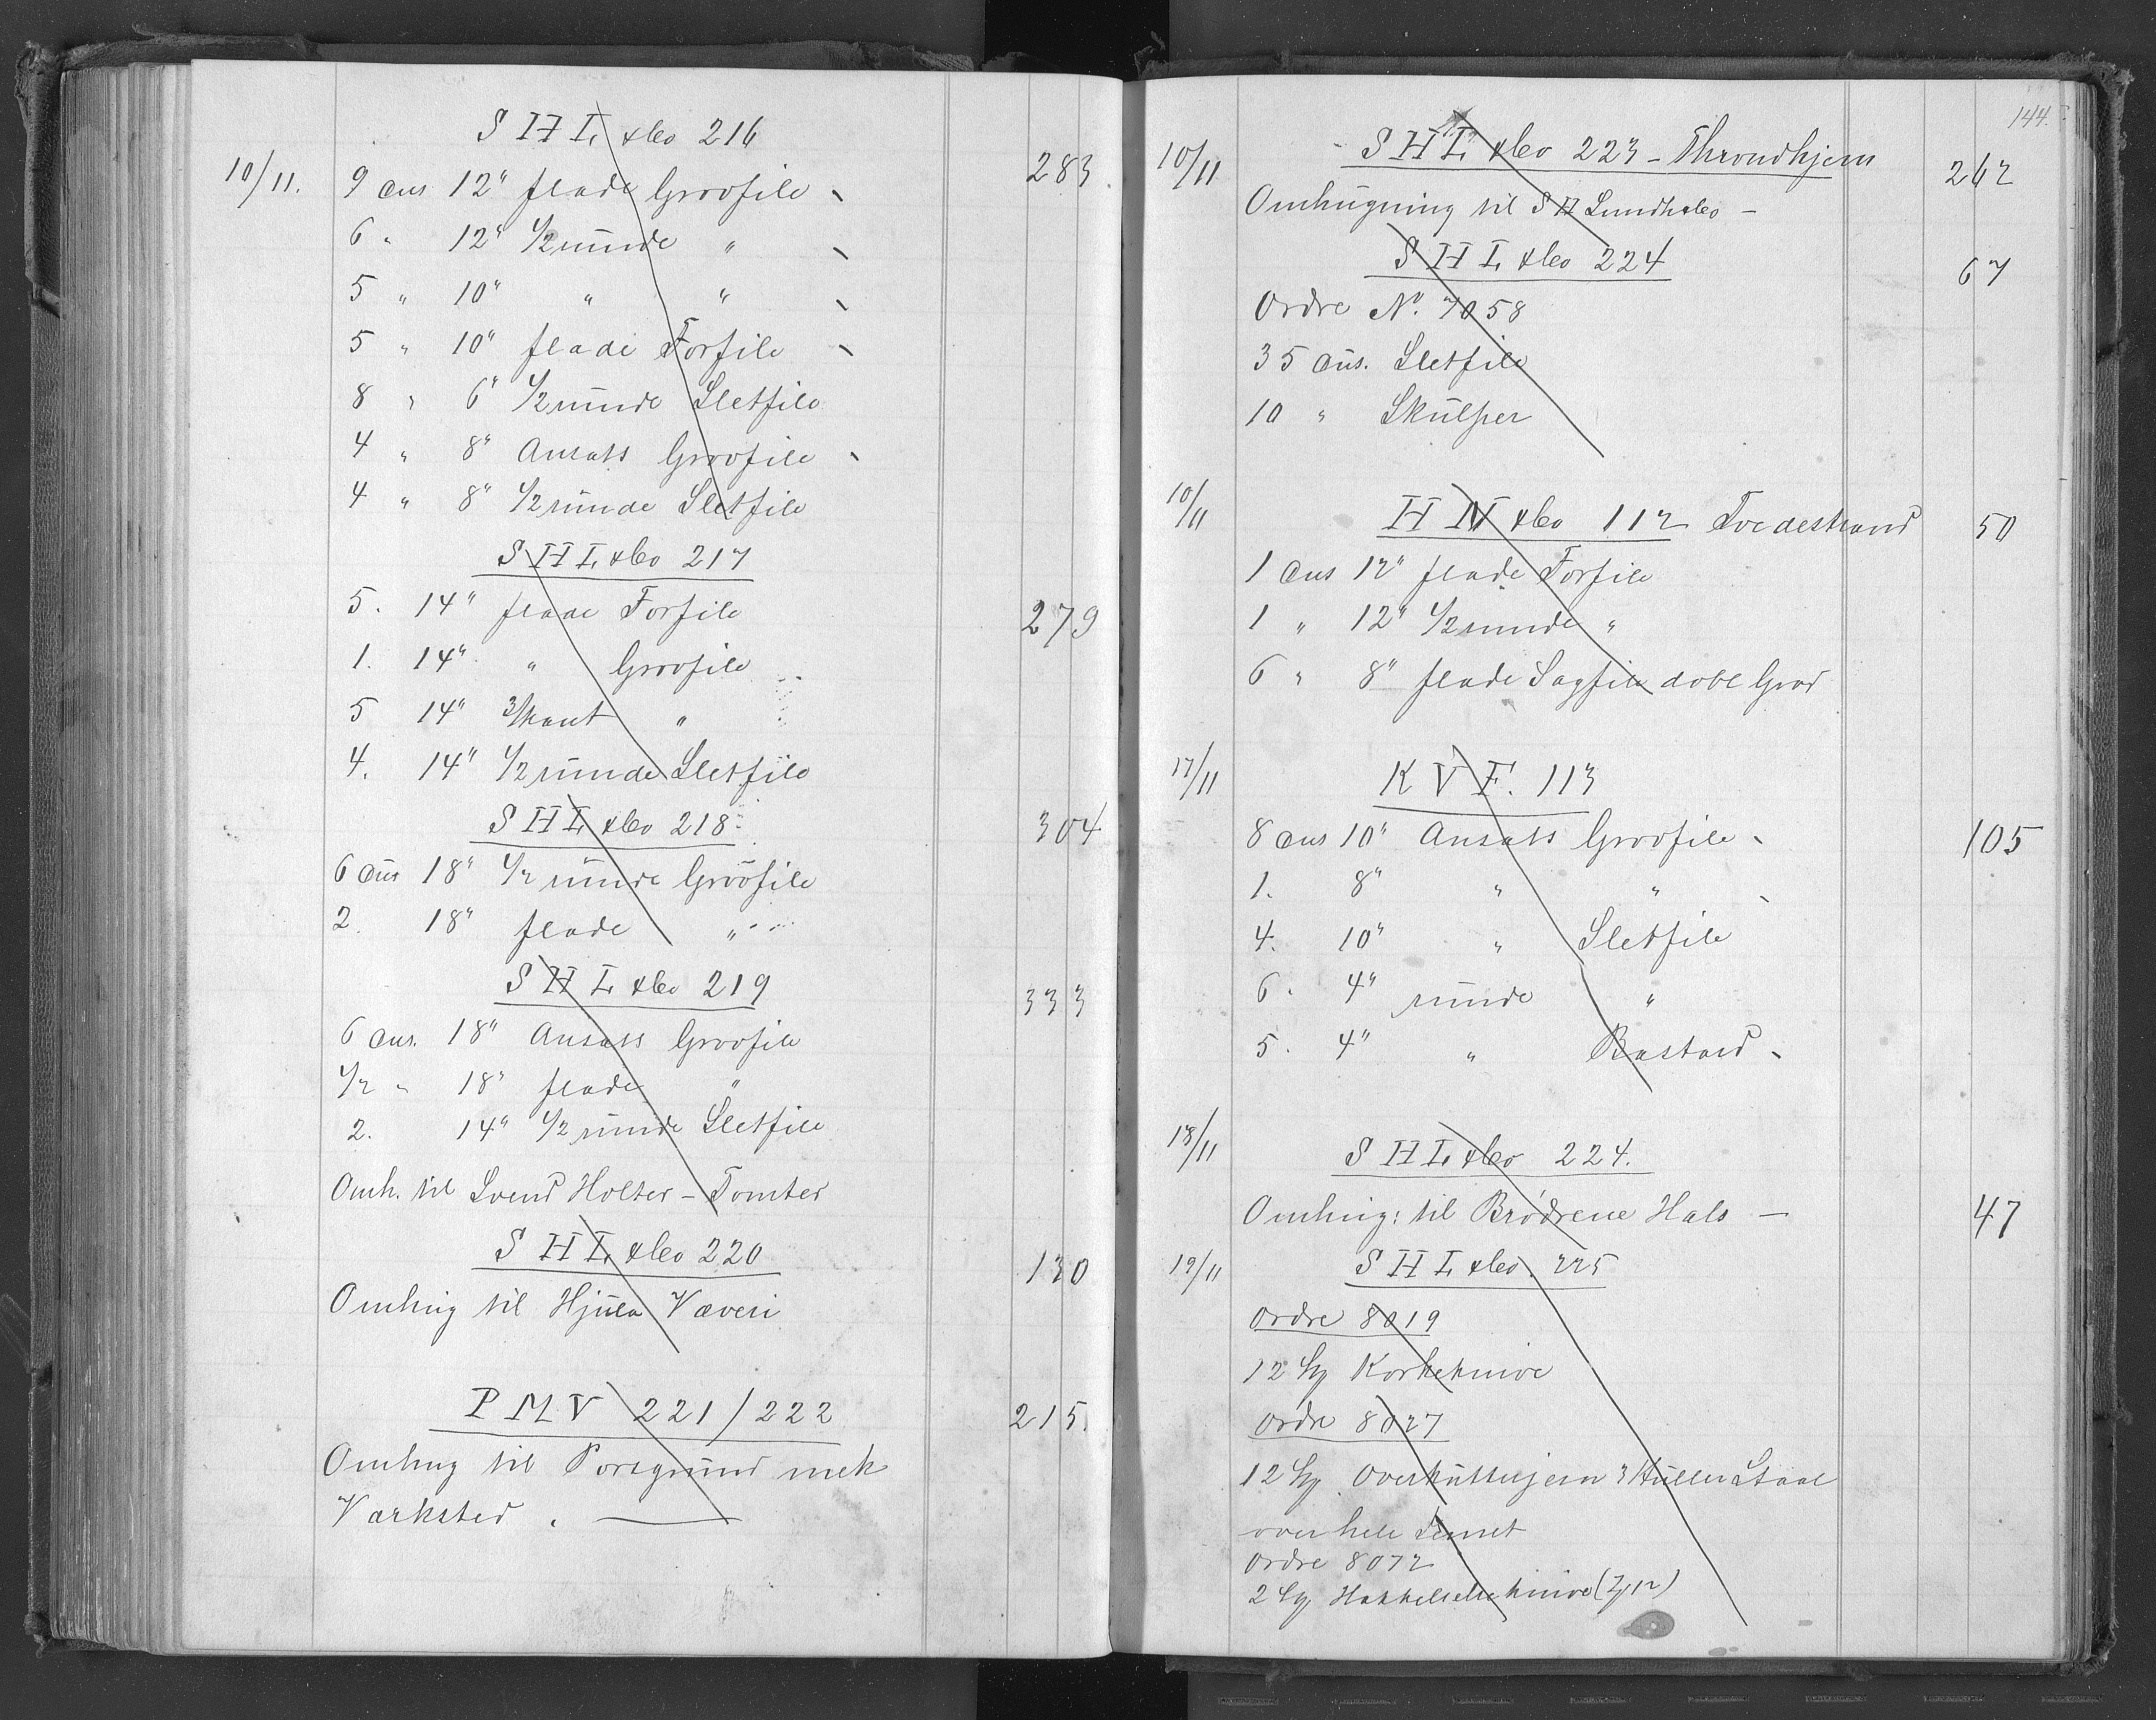 S H L & Co 216
10/11. 9 Dus 12" flade Grovfile 283
6 " 12" 1/2 runde "
5 " 10" " "
5 " 10" flade Forfile
8 " 6" 1/2 runde Sletfile
4 " 8" Ansats Grovfile
4 " 8" 1/2 runde Sletfile
S H L & Co 217
5. 14" flade Forfile 279
1. 14" " Grovfile
5 14" 3/kant "
4. 14" 1/2 runde Sletfile
S H L & Co 218 304
6 Dus 18" 1/2 runde Grovfile
2. 18" flade "
S H L & Co 219 333
6 Dus. 18" Ansats Grovfile
1/2 " 18" flade "
2. 14" 1/2 runde Sletfile
Omh. til Svend Holter - Tomter
S H L & Co 220 130
Omhug til Hjula Væveri
P M V 221/222 215.
Omhug til Porsgrund mek
Værksted.
144.
10/11 S H L & Co 223 - Throndhjem 262
Omhugning til S H Lundh & Co -
S H L & Co 224 67
Ordre No. 7058
35 Dus. Sletfile
10 " Skulper
10/11 H N & Co 112 Tvedestrand 50
1 Dus 12" flade Forfile
1 " 12" 1/2 runde "
6 " 8" flade Sagfile dobl Grad
17/11 K V F. 113
8 Dus 10" Ansats Grovfile 105
1. 8" " "
4. 10" " Sletfile
6. 4" runde "
5. 4" " Bastard
18/11 S H L & Co 224.
Omhug: til Brødrene Hals - 47
19/11 S H L & Co. 225
Ordre 8019
12 Korkeknive
Ordre 8027
12 Overkutterjern 3 Huller Staal
over hele
Ordre 8072
2 Hakkelseknive